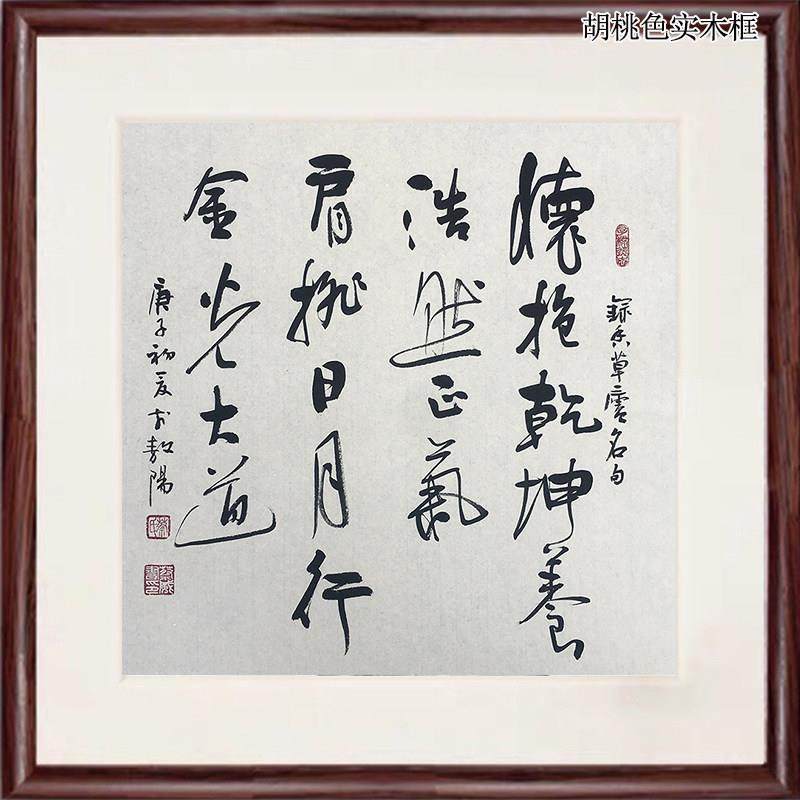 胡桃色实木框
錄香草廬名句
懷抱乾坤養
浩然正氣
肩挑日月行
金光大道
庚子初夏於
陽